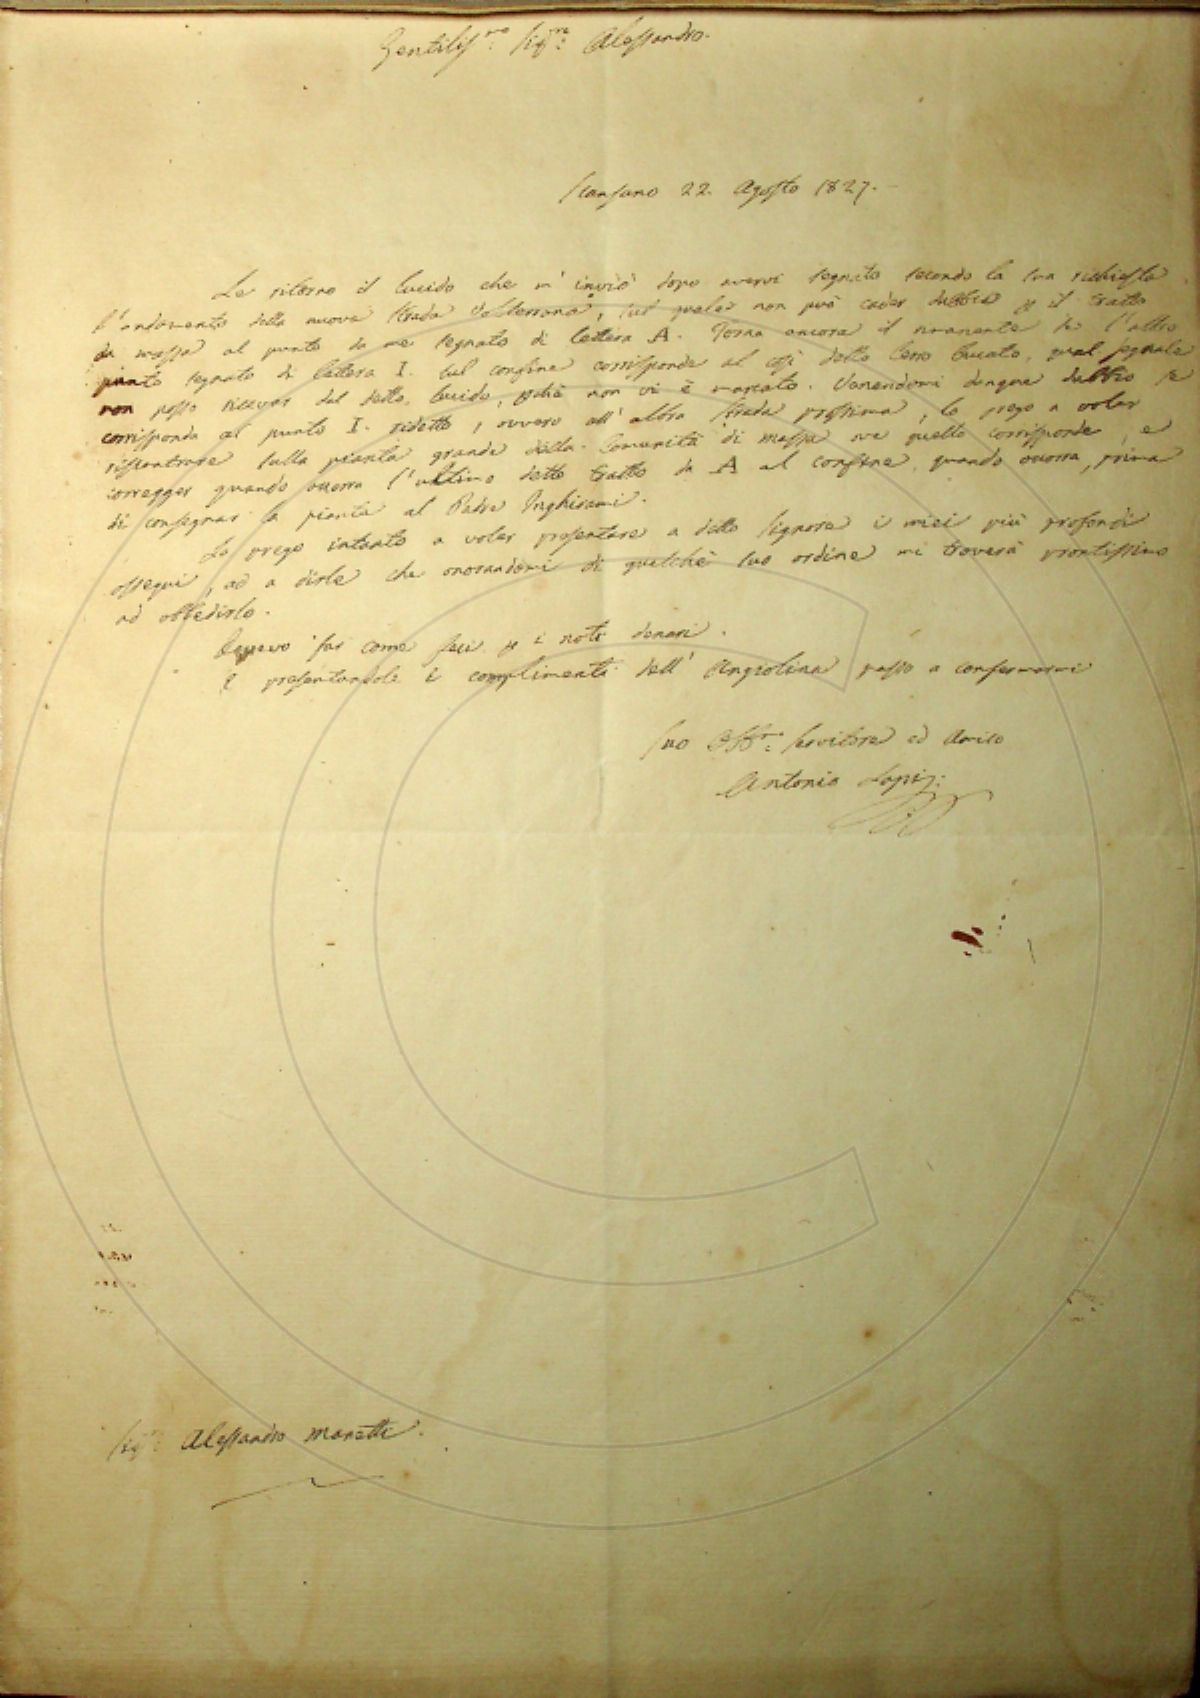 Gentilis.mo Sig.re Alessandro.
Scansano 22. Agosto 1827.
Le ritorno il lucido che m'inviò dopo avervi segnato secondo la sua richiesta
l'andamento della nuova Strada Volterrana, sul quale non può cader dubbio p il tratto
da massa al punto da me segnato di lettera A. Torna ancora il rimanente da l'altro
punto segnato di lettera I. sul confine corrisponde al così detto Cerro bucato, qual segnale
non posso rilevar dal detto lucido, poichè non vi è marcato. Venendomi dunque dubbio se
corrisponda al punto I. ridetto, ovvero all'altra Strada prossima, la prego a voler
riscontrare sulla pianta grande della Comunità di massa ove quello corrisponde, e
correggер quando occorra l'ultimo detto tratto da A al confine, quando occorra, prima
di consegnar la pianta al Padre Inghirami.
La prego intanto a voler presentare a detto Signore i miei più profondi
ossequi, ed a dirle che onorandomi di qualche suo ordine mi troverà prontissimo
ad obbedirlo.
far come p i noti denari.
E presentandole i complimenti dell'Angiolina passo a confermarmi
Suo Servitore ed Amico
Antonio Lapi:
Sig.re Alessandro Manetti.